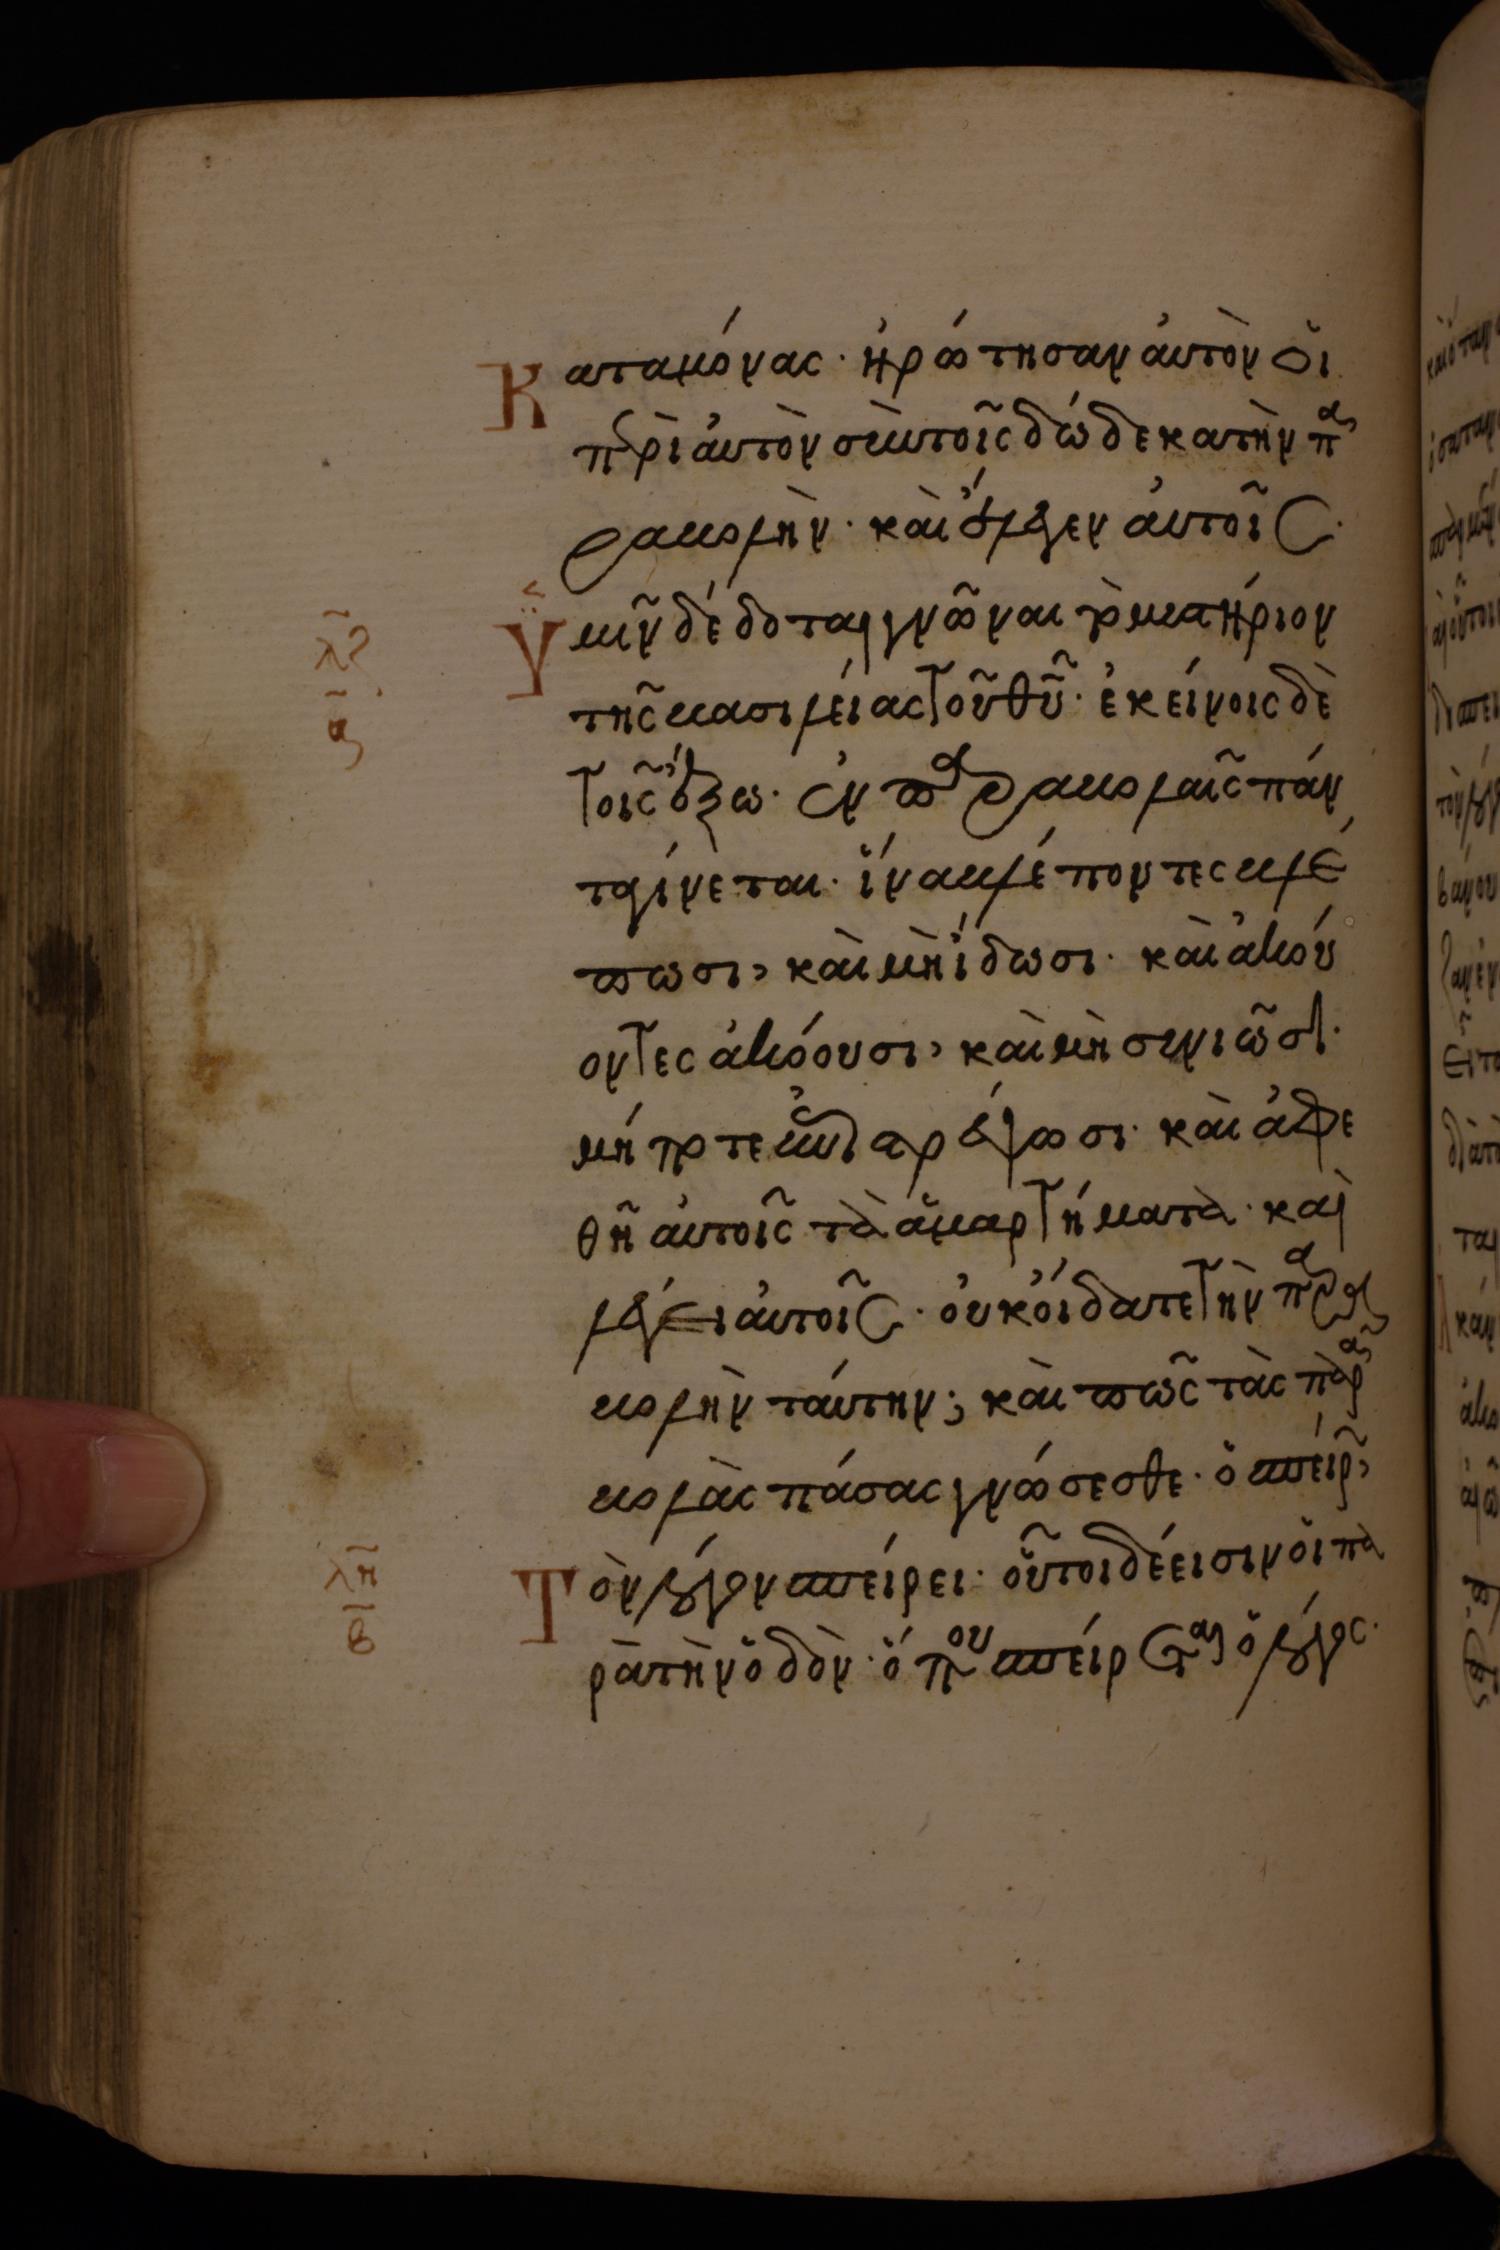 Καταμόνας· ἠρώτησαν ἀυτὸν ὅι
πὲρὶ ἀυτὸν σὺντοῖς δώδεκα τὴν πα
ραβολὴν· κὰι ἔλεγεν ἀυτοῖς·
Ὑμῖν δέδοται γνῶναι τὸ μυστήριον
τῆς βασιλέιας τοῦ θῦ· ἐκείνοις δὲ
τοῖς ἔξω· ἐν παραβολαῖς πάν
τα γίνεται· ἵνα βλέποντες βλέ
πωσι, κὰι μὴ ἴδωσι· κὰι ἀκόυ
οντες ἀκόουσι, κὰι μὴ συνιῶσι·
μήποτε ἐπιστρέψωσι· κὰι ἀφε
θῆ ἀυτοῖς τὰ ἁμαρτήματὰ· καὶ
λέγει ἀυτοῖς· ὀυκ ὄιδατε τὴν παρα
βολὴν τάυτην; κὰι πῶς τὰς παρα
βολὰς πάσας γνώσεσθε· ὁ σπείρων,
Τὸν λόγον σπείρει· οὗτοι δέ εισιν ὁι πα
ρὰ τὴν ὁδὸν· ὅπου σπείρεται ὁ λόγος·
λζ
α
λη
β